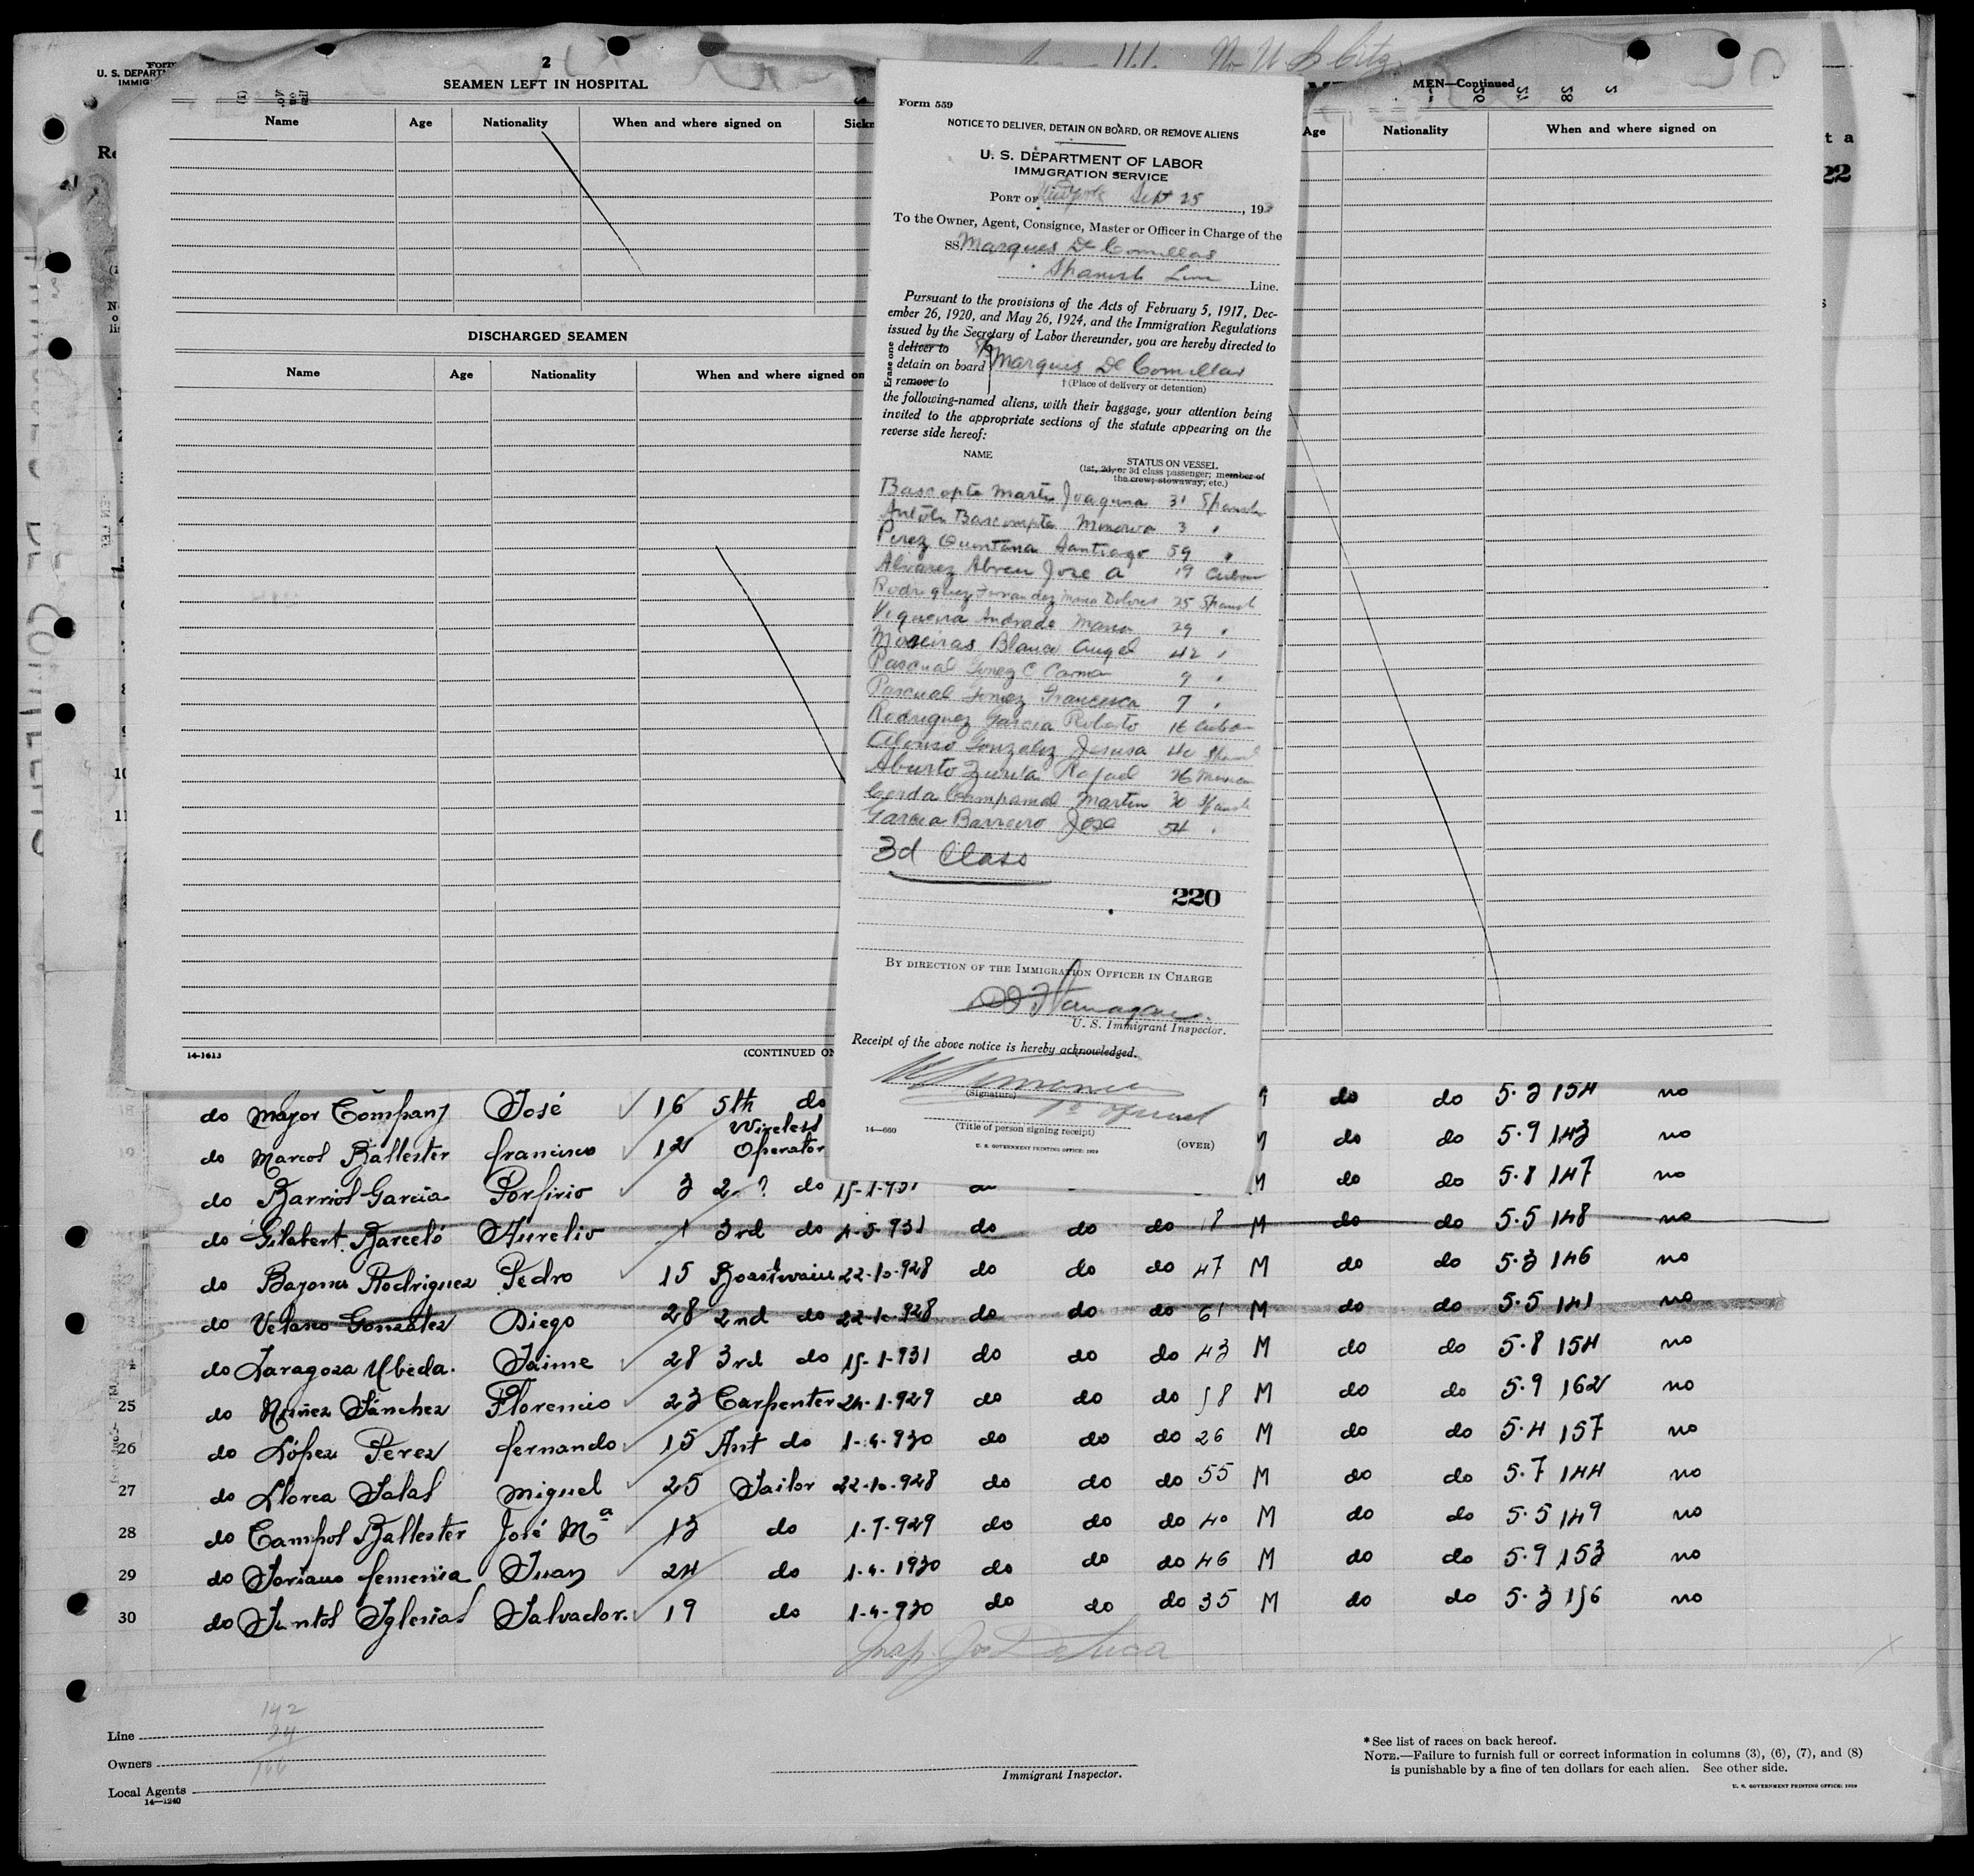 2
SEAMEN LEFT IN HOSPITAL
Name Age Nationality When and where signed on
DISCHARGED SEAMEN
Name Age Nationality When and where signed on
14-1613
(CONTINUED ON
MEN—Continued
Age Nationality When and where signed on
Form 559
NOTICE TO DELIVER, DETAIN ON BOARD, OR REMOVE ALIENS
U. S. DEPARTMENT OF LABOR
IMMIGRATION SERVICE
PORT OF New York Sept 25, 193
To the Owner, Agent, Consignee, Master or Officer in Charge of the
SS Marques De Comillas
Spanish Line Line.
Pursuant to the provisions of the Acts of February 5, 1917, Dec-
ember 26, 1920, and May 26, 1924, and the Immigration Regulations
issued by the Secretary of Labor thereunder, you are hereby directed to
Erase one
deliver to
detain on board Marquis De Comillas
remove to
† (Place of delivery or detention)
the following-named aliens, with their baggage, your attention being
invited to the appropriate sections of the statute appearing on the
reverse side hereof:
NAME STATUS ON VESSEL
(1st, 2d, or 3d class passenger; member of
the crew; stowaway, etc.)
Bascopte Martin Joaquina 31 Spanish
Bascompte 3 "
Perez Quintana Santiago 59 "
Alvarez Abreu Jose A 19 Cuban
Rodriguez Fernandez Maria Dolores 25 Spanish
Viqueira Andrade Maria 29 "
Moreiras Blanco Angel 42 "
Pascual Gomez C 9 "
Pascual Gomez Francisca 7 "
Rodriguez Garcia Roberto 16 Cuban
Alonso Gonzalez Jesusa 40 Spanish
Aburto Zurita Rafael 26 Mexican
Cerda Campamal Martin 30 Spanish
Garcia Barreiro Jose 54 "
3d Class
220
BY DIRECTION OF THE IMMIGRATION OFFICER IN CHARGE
U. S. Immigrant Inspector.
Receipt of the above notice is hereby acknowledged.
(Signature)
(Title of person signing receipt)
14—660
U. S. GOVERNMENT PRINTING OFFICE: 1929
(OVER)
do Mayor Company José 16 5th do do do 5.3 154 no
do Marcol Ballester francisco 12 Wireless Operator do do 5.9 143 no
do Barriol Garcia Porfirio 3 2. ? do 15-1-931 M do do 5.8 147 no
do Gilabert Barceló Aurelio 1 3rd do 4-5-931 do do do 18 M do do 5.5 148 no
do Bayona Rodriguez Pedro 15 Boastwain 22-10-928 do do do 47 M do do 5.3 146 no
do Velasco Gonzalez Diego 28 2nd do 22-10-928 do do do 61 M do do 5.5 141 no
do Zaragoza Ubeda. Jaime 28 3rd do 15-1-931 do do do 43 M do do 5.8 154 no
25 do Núñez Sánchez Florencio 23 Carpenter 24-1-929 do do do 58 M do do 5.9 162 no
26 do López Perez fernando 15 Ant do 1-4-930 do do do 26 M do do 5.4 157 no
27 do Llorca Salas Miguel 25 Tailor 22-10-928 do do do 55 M do do 5.7 144 no
28 do Campol Ballester José Mª 13 do 1-7-929 do do do 40 M do do 5.5 149 no
29 do Soriano femenia Juan 24 do 1-4-1930 do do do 46 M do do 5.9 153 no
30 do Santos Iglesias Salvador. 19 do 1-4-930 do do do 35 M do do 5.3 156 no
142
24
166
Line
Owners
Local Agents
14—1240
Immigrant Inspector.
* See list of races on back hereof.
NOTE.—Failure to furnish full or correct information in columns (3), (6), (7), and (8)
is punishable by a fine of ten dollars for each alien. See other side.
U. S. GOVERNMENT PRINTING OFFICE: 1929